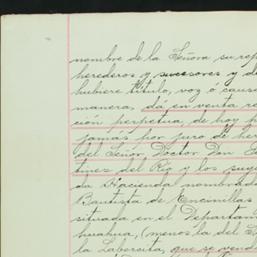 nombre de la Señora su rep
herederos y sucesores y de
hubiere título, voz ó caus
manera, dá en venta re
ción perpetua, de hoy p
jamás por juro de her
del Señor Doctor Don E
tines del Rio y los suyo
da Hacienda nombrada
Bautista de Encinillas
situada en el Departam
huahua, (menos la del S
la Laborcita, que se vend